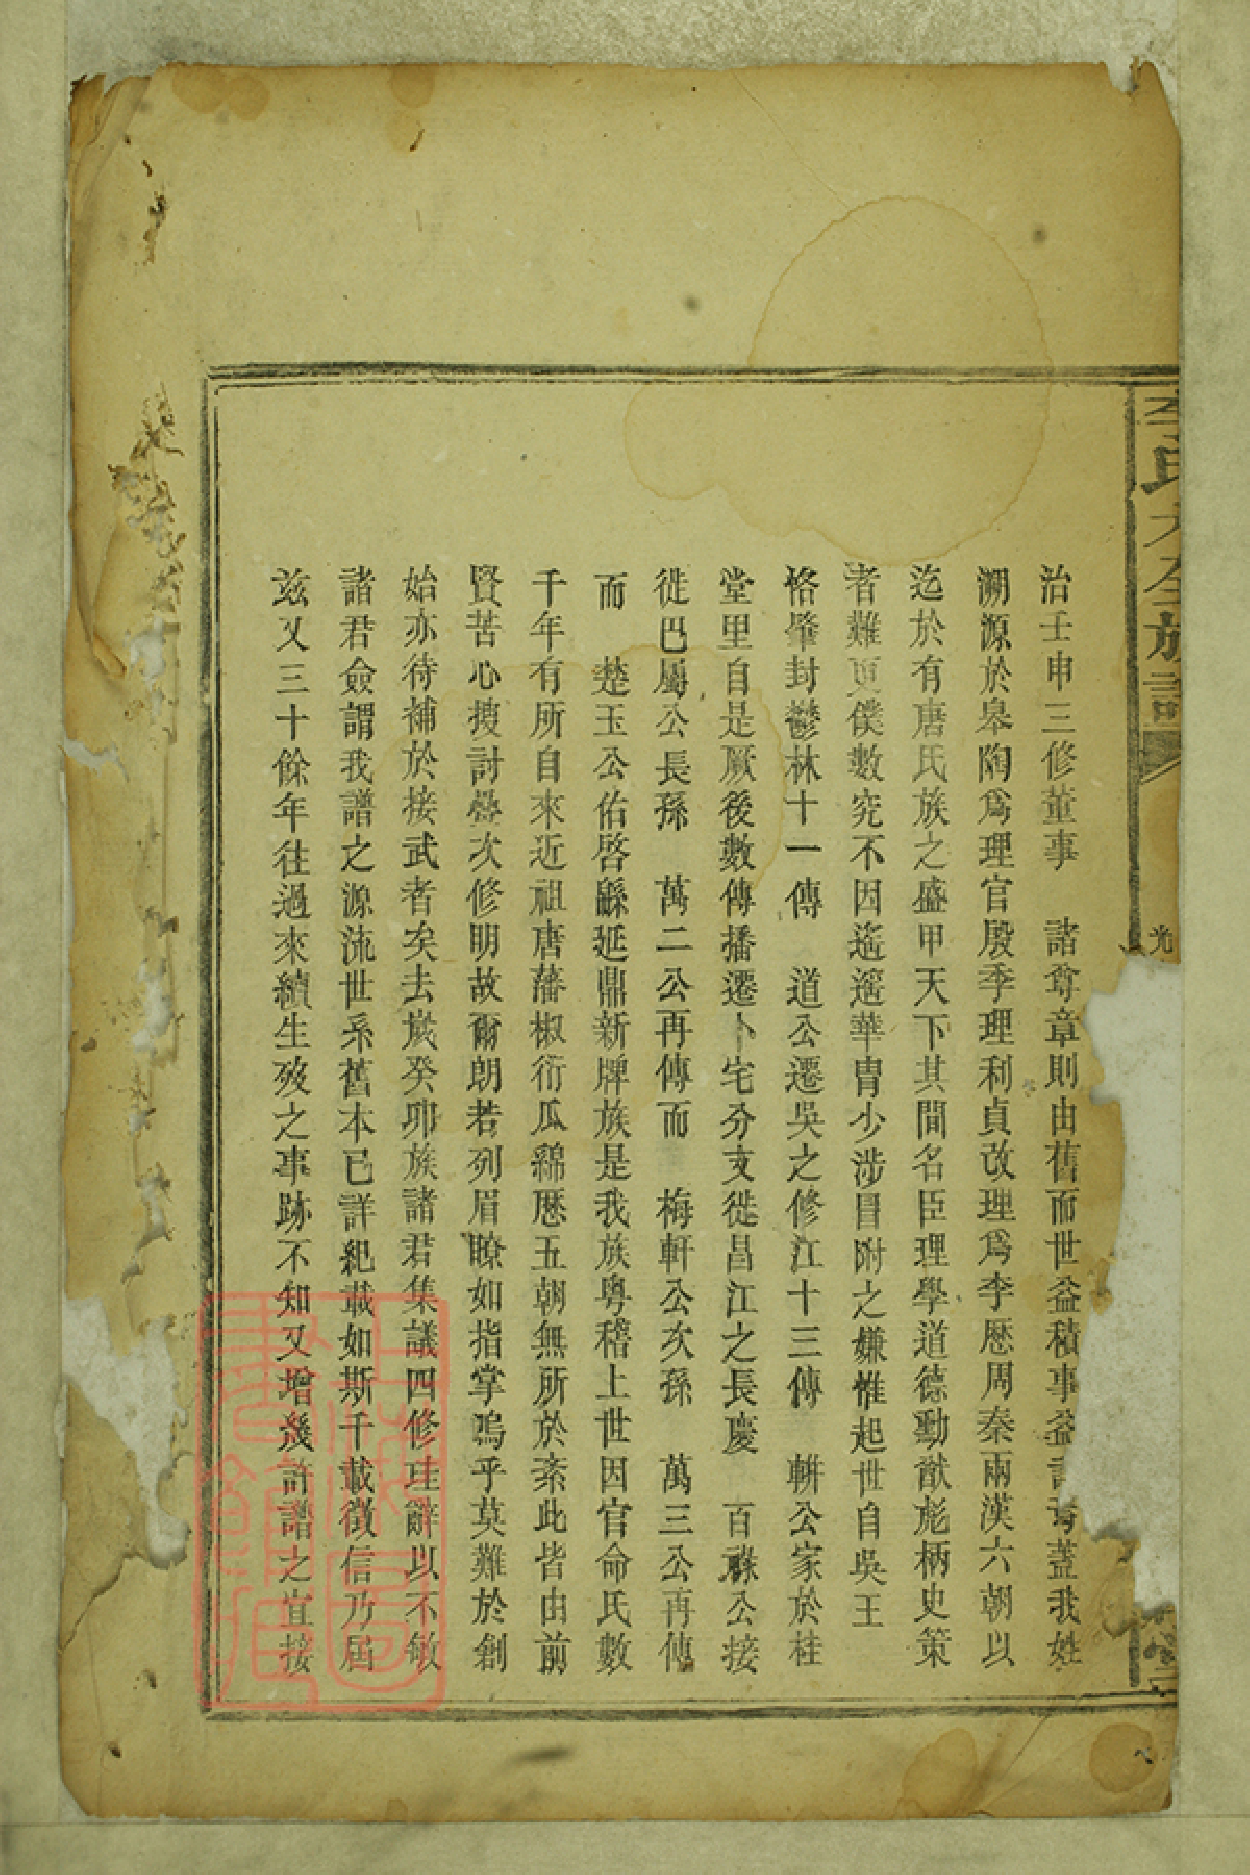 李氏大全族譜
光
治壬申三修董事　諸尊章則由舊而世益積事益蓋我姓
溯源於皋陶爲理官殷季理利貞改理爲李歷周秦兩漢六朝以
迄於有唐氏族之盛甲天下其間名臣理學道德勳猷彪柄史策
者難更僕數究不因遙遙華胄少涉冒附之嫌惟起世自吳王
恪肇封鬱林十一傳　道公遷吳之修江十三傳　耕公家於桂
堂里自是厥後數傳播遷卜宅分支徙昌江之長慶　百祿公接
徙巴屬公長孫　萬二公再傳而　梅軒公次孫　萬三公再傳
而　楚玉公佑啓繇延鼎新牌族是我族粵稽上世因官命氏數
千年有所自來近祖唐藩椒衍瓜綿歷五朝無所於紊此皆由前
賢苦心搜討疊次修明故爾朗若列眉瞭如指掌嗚乎莫難於創
始亦待補於接武者矣去歲癸卯族諸君集議四修珪辭以不敏
諸君僉謂我譜之源流世系舊本已詳紀載如斯千載徵信乃屆
玆又三十餘年往過來續生歿之事跡不知又增幾許譜之宜接
上海圖書館藏